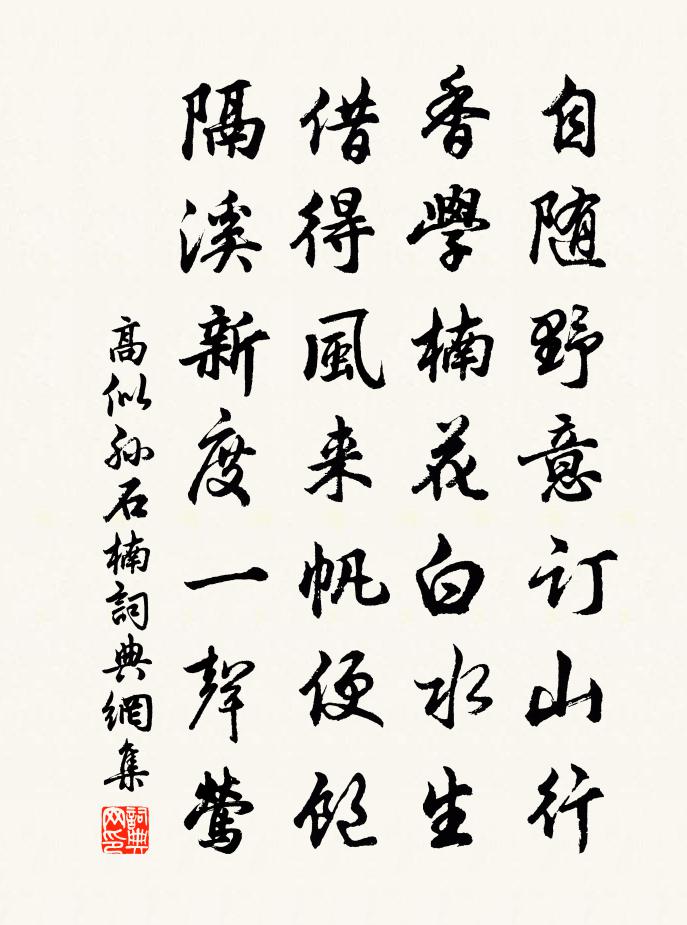 自随野意订山行
香學楠花白水生
借得風来帆便飽
隔溪新度一聲鶯
高似孙石楠詞典網集
詞典網印